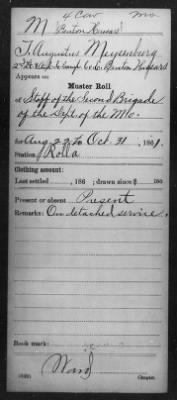 4 Cav Mo
M Benton Hussars
T. Augustus Meysenburg
2d Lt & Adjt Camp Co. C. Benton Hussars
Appears on
Muster Roll
of Staff of the Second Brigade
of the Dept. of the Mo.
for Aug 22 to Oct 31, 1861.
Station Rolla
Clothing account:
Last settled , 186 ; drawn since $ 100
Present or absent Present
Remarks: On detached service.
Book mark:
Ward
Copyist.